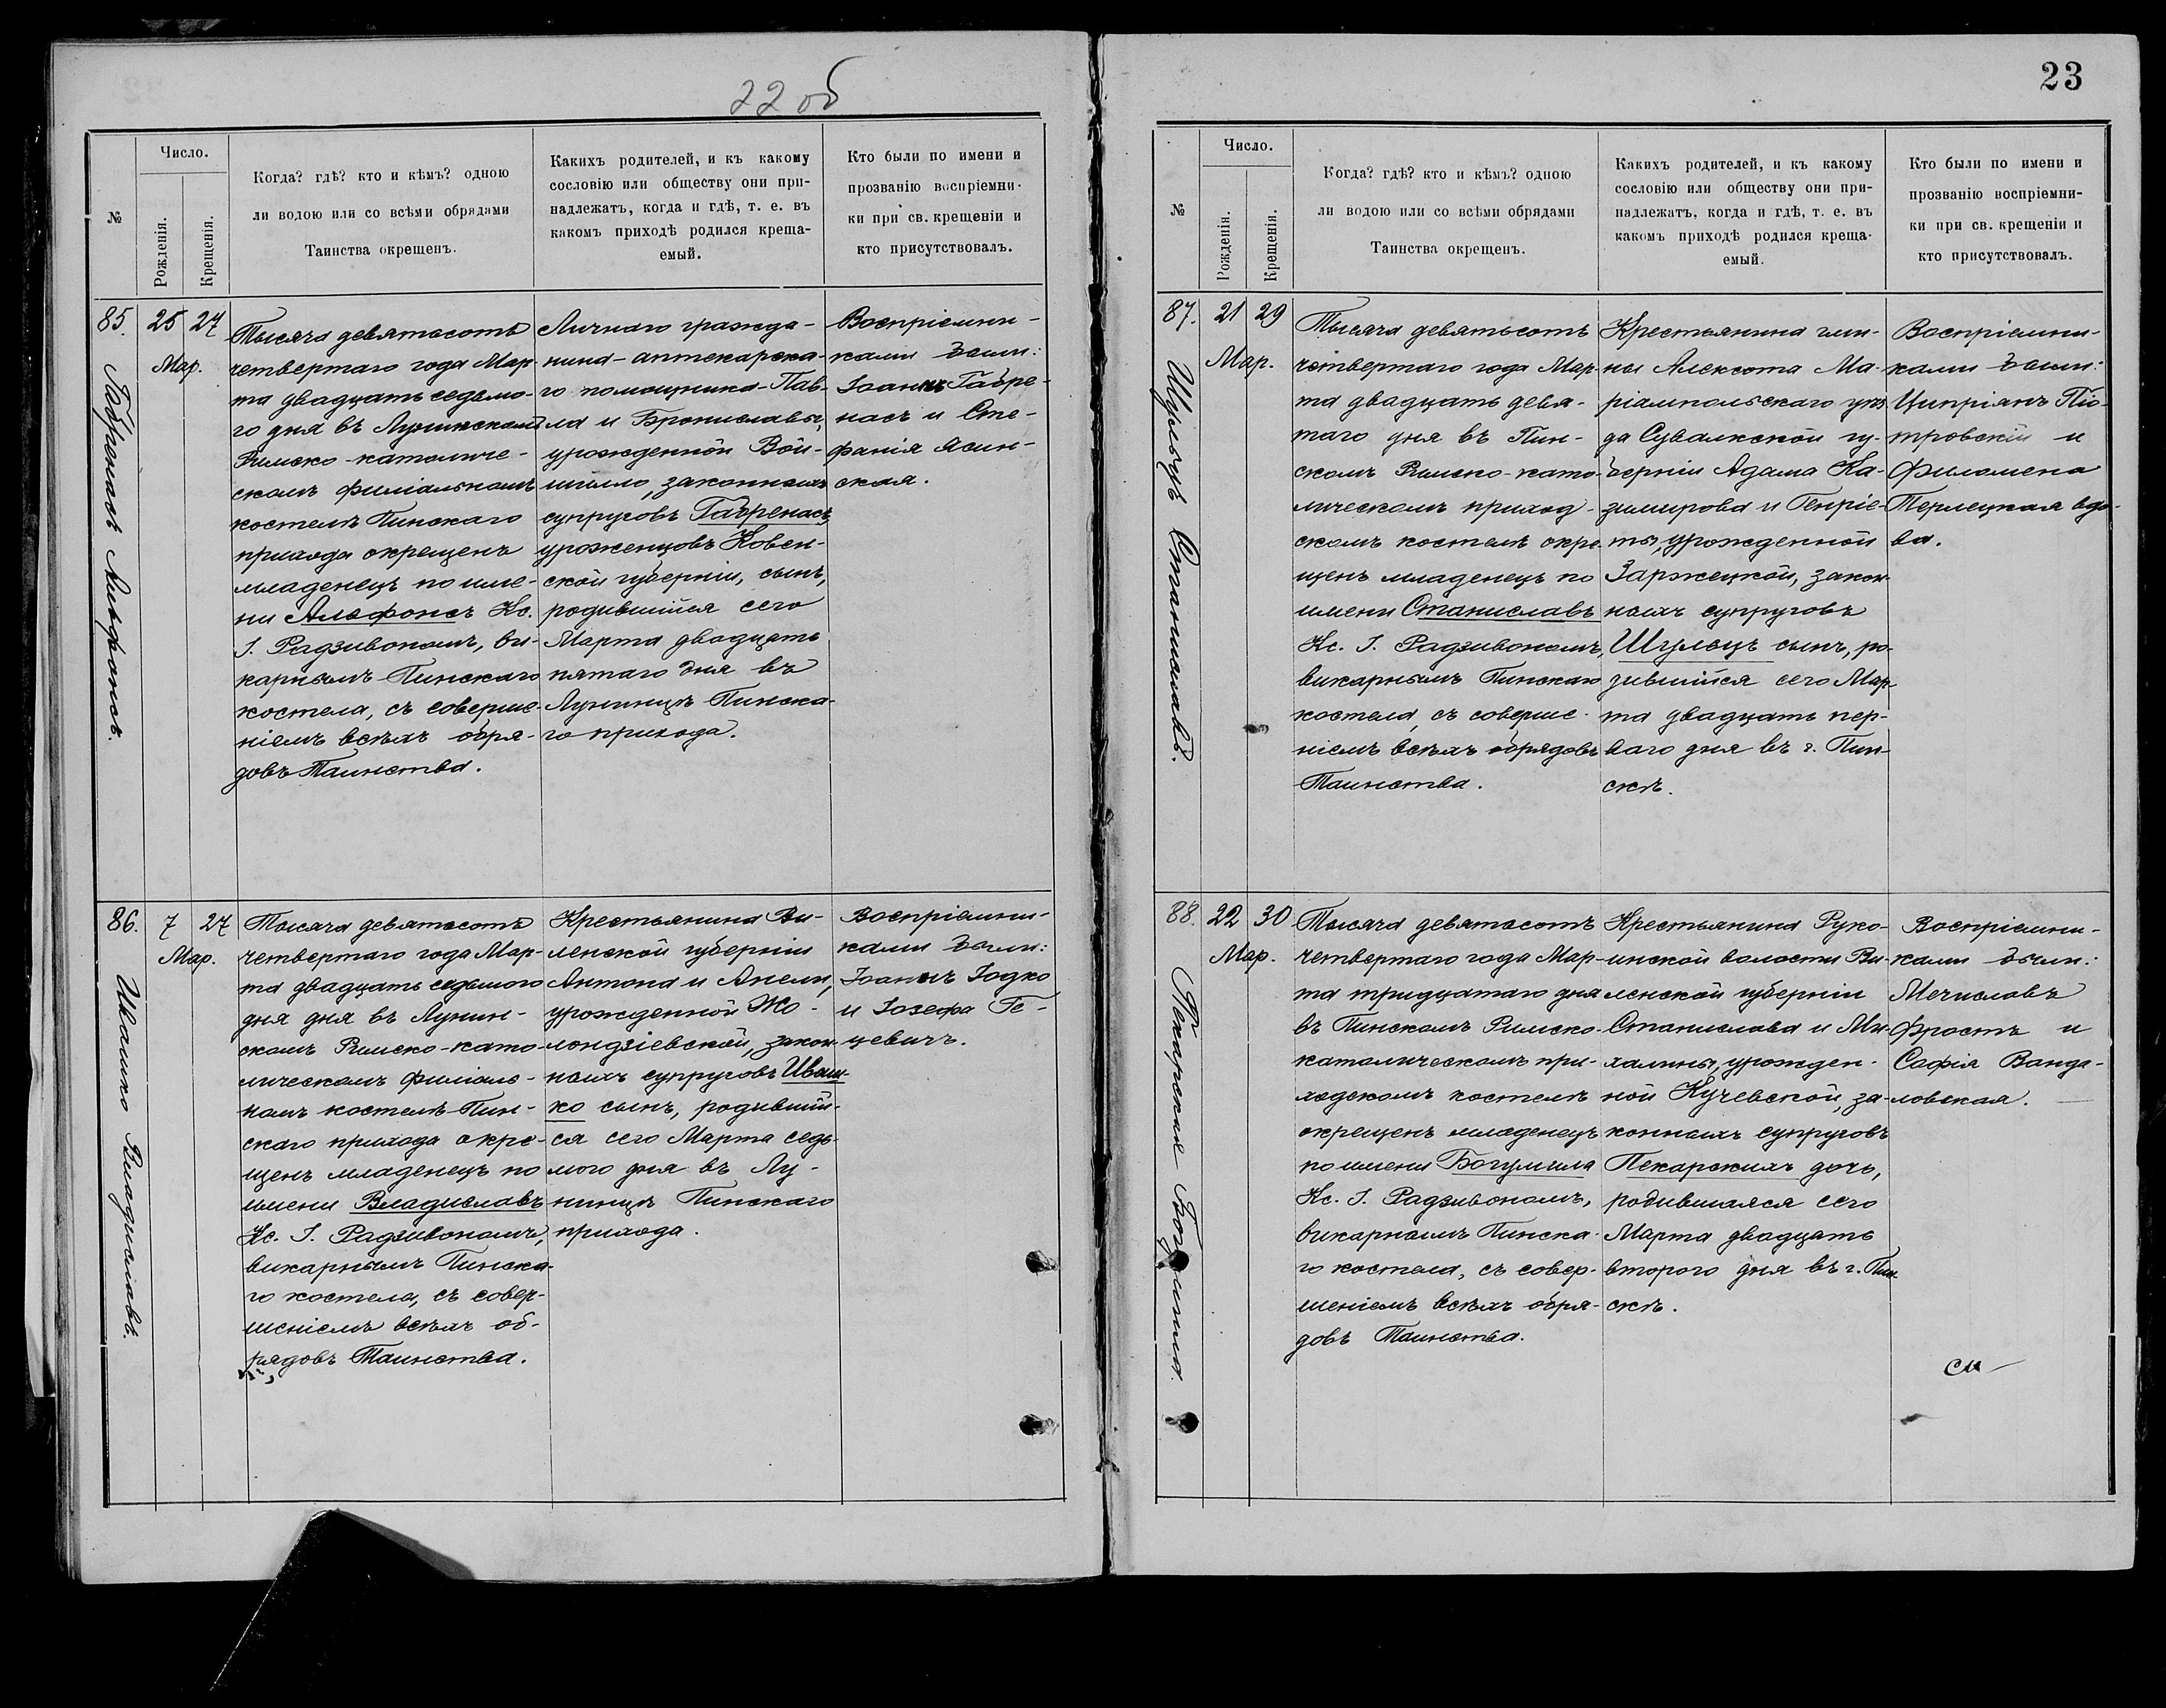 22 об
№
Число.
Рожденія.
Крещенія.
Когда? гдѣ? кто и кѣмъ? одною
ли водою или со всѣми обрядами
Таинства окрещенъ.
Какихъ родителей, и къ какому
сословію или обществу они при-
надлежатъ, когда и гдѣ, т. е. въ
какомъ приходѣ родился креща-
емый.
Кто были по имени и
прозванію воспріемни-
ки при св. крещеніи и
кто присутствовалъ.
85.
Габренасъ Альфонсъ.
25 27
Мар.
Тысяча девятьсотъ
четвертаго года Мар-
та двадцать седьмо-
го дня въ Лунинскомъ
Римско-католиче-
скомъ филіальномъ
костелѣ Пинскаго
прихода окрещенъ
младенецъ по име-
ни Альфонсъ Кс.
І. Радзивономъ, ви-
карнымъ Пинскаго
костела, съ соверше-
ніемъ всѣхъ обря-
довъ Таинства.
Личнаго гражда-
нина-аптекарска-
го помощника-Пав-
ла и Брониславы,
урожденной Вой-
шилло, законныхъ
супруговъ Габренасъ,
уроженцовъ Ковен-
ской губерніи, сынъ,
родившійся сего
Марта двадцать
пятаго дня въ
Лунинцѣ Пинска-
го прихода.
Воспріемни-
ками были:
Іоаннъ Габре-
насъ и Сте-
фанія Ясин-
ская.
86.
Ивашко Владиславъ.
7 27
Мар.
Тысяча девятьсотъ
четвертаго года Мар-
та двадцать седьмого
дня дня въ Лунин-
скомъ Римско-като-
лическомъ филіаль-
номъ костелѣ Пин-
скаго прихода окре-
щенъ младенецъ по
имени Владиславъ
Кс. І. Радзивономъ,
викарнымъ Пинска-
го костела, съ совер-
шеніемъ всѣхъ об-
рядовъ Таинства.
Крестьянина Ви-
ленской губерніи
Антона и Анели,
урожденной Жо-
лондзіевской, закон-
ныхъ супруговъ Иваш-
ко сынъ, родившій-
ся сего Марта седь-
мого дня въ Лу-
нинцѣ Пинскаго
прихода.
Воспріемни-
ками были:
Іоаннъ Іодко
и Іозефа Ге-
цевичъ.
23
№
Число.
Рожденія.
Крещенія.
Когда? гдѣ? кто и кѣмъ? одною
ли водою или со всѣми обрядами
Таинства окрещенъ.
Какихъ родителей, и къ какому
сословію или обществу они при-
надлежатъ, когда и гдѣ, т. е. въ
какомъ приходѣ родился креща-
емый.
Кто были по имени и
прозванію воспріемни-
ки при св. крещеніи и
кто присутствовалъ.
87.
Шульцъ Станиславъ.
21 29
Мар.
Тысяча девятьсотъ
четвертаго года Мар-
та двадцать девя-
таго дня въ Пин-
скомъ Римско-като-
лическомъ приход-
скомъ костелѣ окре-
щенъ младенецъ по
имени Станиславъ
Кс. І. Радзивономъ,
викарнымъ Пинскаго
костела, съ соверше-
ніемъ всѣхъ обрядовъ
Таинства.
Крестьянина гми-
ны Алексота Ма-
ріампольскаго уѣз-
да Сувалкской гу-
берніи Адама Ка-
зимирова и Генріе-
ты, урожденной
Заржецкой, закон-
ныхъ супруговъ
Шульцъ сынъ, ро-
дившійся сего Мар-
та двадцать пер-
ваго дня въ г. Пин-
скѣ.
Воспріемни-
ками были:
Ципріянъ Піо-
тровскій и
Филомена
Терлецкая вдо-
ва.
88.
Пекарская Богумила.
22 30
Мар.
Тысяча девятьсотъ
четвертаго года Мар-
та тридцатаго дня
въ Пинскомъ Римско-
католическомъ при-
ходскомъ костелѣ
окрещенъ младенецъ
по имени Богумила
Кс. І. Радзивономъ,
викарнымъ Пинска-
го костела, съ совер-
шеніемъ всѣхъ обря-
довъ Таинства.
Крестьянина Руко-
инской волости Ви-
ленской губерніи
Станислава и Ми-
халины, урожден-
ной Кучевской, за-
конныхъ супруговъ
Пекарскихъ дочь,
родившаяся сего
Марта двадцать
второго дня въ г. Пин-
скѣ.
Воспріемни-
ками были:
Мечиславъ
Фростъ и
Софія Ванда-
ловская.